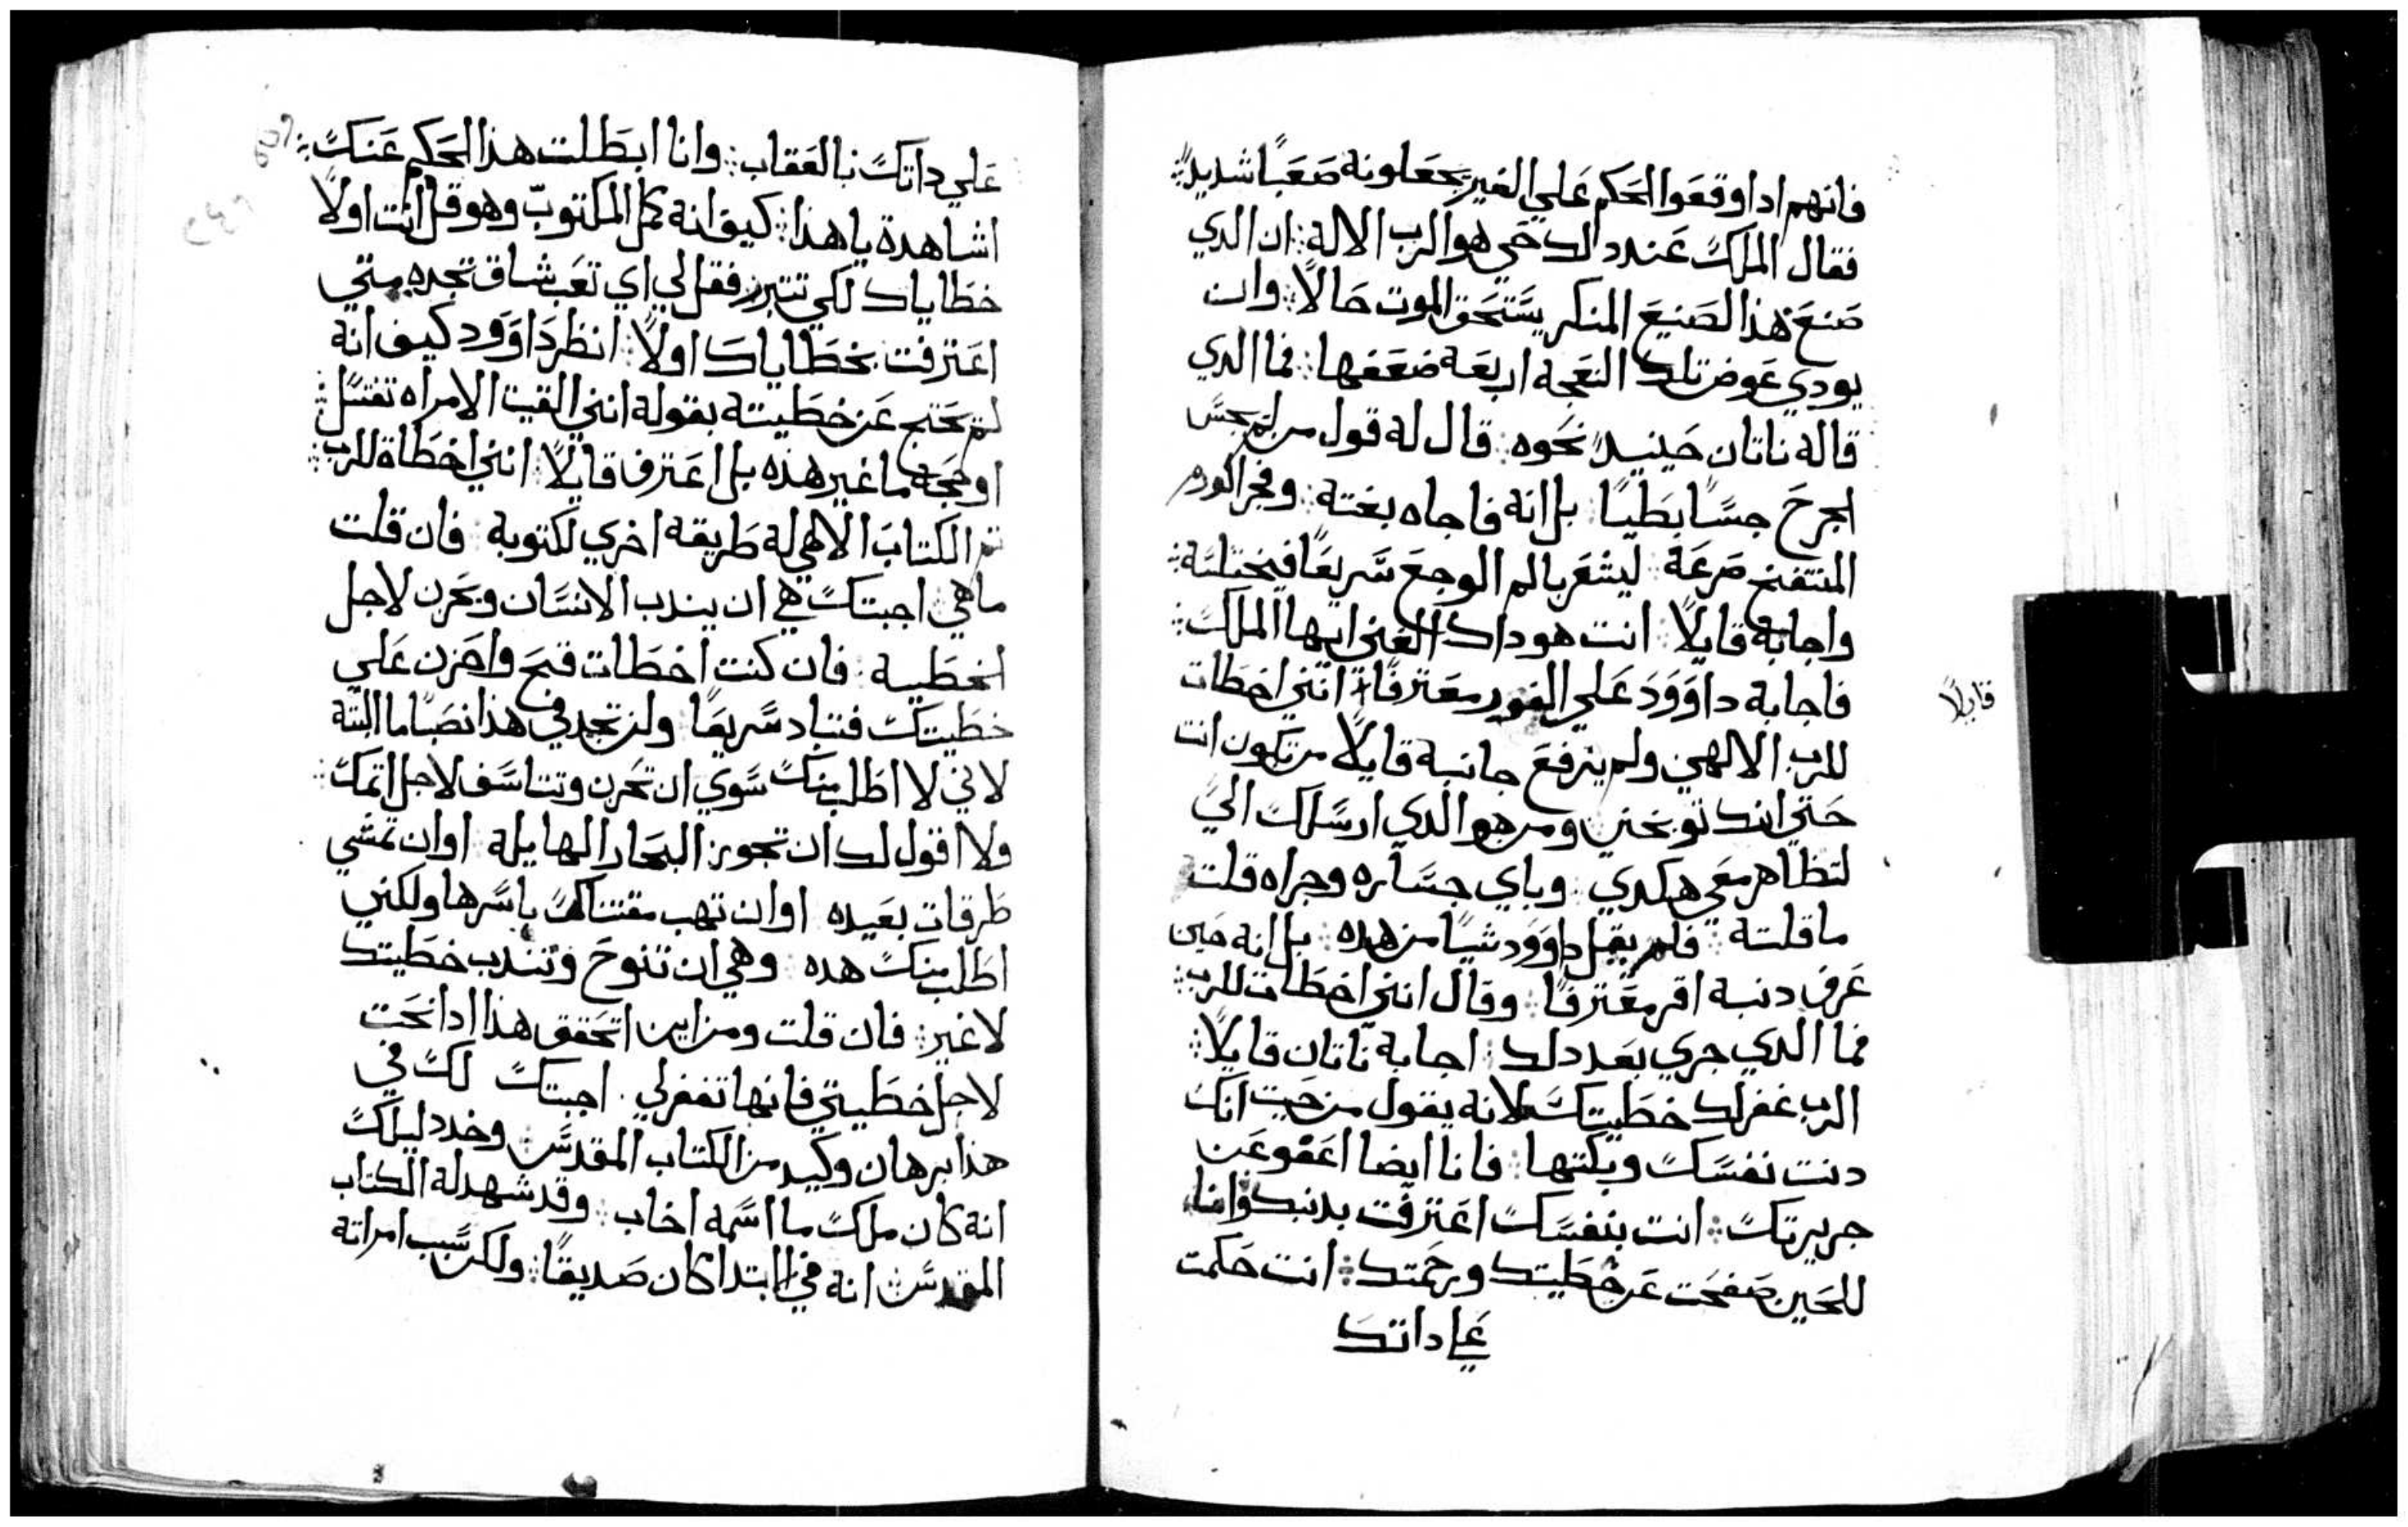 فانهم ادا وقعوا الحكم علي الغير يجعلونه صعبًا شديدًا؞
فقال الملك عند دلك حي هو الرب الاله؞ ان الدي
صنع هذا الصنيع المنكر يستحق الموت حالاً؞ وان
يودي عوض تلك النعجة اربعة ضعفها؞ فما الدي
قاله ناتان حينيدٍ نحوه؞ قال له قول من لم يجس
الجرح جسًا بطيًا؞ بل انه فاجاه بغتة؞ وفجر الورم
المنتفخ صرعة؞ ليشعر بالم الوجع سريعًا فيختلسه؞
واجابه قايلاً؞ انت هو داك الغني ايها الملك؞
فاجابه داوود علي الفور معترفًا؞ انني اخطات
قايلاً
للرب الالهي ولم يرفع جانبه قايلاً من تكون انت
حتي انك توبخني؞ ومن هو الدي ارسلك الي
لتظاهر معي هكدي؞ وباي جساره وجراه قلت
ما قلته؞ فلم يقل داوود شيًا من هده؞ بل انه حين
عرف دنبه اقر معترفًا؞ وقال انني اخطات للرب؞
فما الدي جري بعد دلك؞ اجابه ناتان قايلاً؞
الرب غفر لك خطيتك؞ لانه يقول من حيت انك
دنت نفسك وبكتها؞ فانا ايضا اعفو عن
جريرتك؞ انت بنفسك اعترفت بدنبك وانا
للحين صفحت عن خطيتك ورحمتك؞ انت حكمت
علي داتك
علي داتك بالعقاب؞ وانا ابطلت هذا الحكم عنك؞
اشاهدة ياهذا؞ كيف انه كمل المكتوب وهو قل انت اولاً
خطاياك لكي تتبرر فقل لي اي تعب شاق تجده متي
اعترفت بخطاياك اولاً؞ انظر داوود كيف انه
لم يحتج عن خطيته بقوله انني القيت الامراه تغتسل؞
او حجة ما غير هذه بل اعترف قايلاً؞ انني اخطاة للرب؞
تم الكتاب الالهي له طريقه اخري للتوبه؞ فان قلت
ماهي؞ اجبتك هي ان يندب الانسان ويحزن لاجل
الخطيه؞ فان كنت اخطات فنح واحزن علي
خطيتك فتباد سريعًا ولن تجد في هذا نصبًا ما البتة
لاني لا اطلب منك سوي ان تحزن وتتاسف لاجل اتمك؞
ولا اقول لك ان تجوز البحار الهايلة؞ او ان تمشي
طرقات بعيده او ان تهب مقتناك باسرها ولكنني
اطلب منك هده؞ وهي ان تنوح وتندب خطيتك
لا غير؞ فان قلت ومن اين اتحقق هذا ادا نحت
لاجل خطيتي فانها تغفر لي؞ اجبتك لك في
هذا برهان وكيد من الكتاب المقدس؞ وخد دليلك
انه كان ملك ما اسمه اخاب؞ وقد شهد له الكتاب
المقدس؞ انه في الابتدا كان صديقًا؞ ولكن سبب امراته